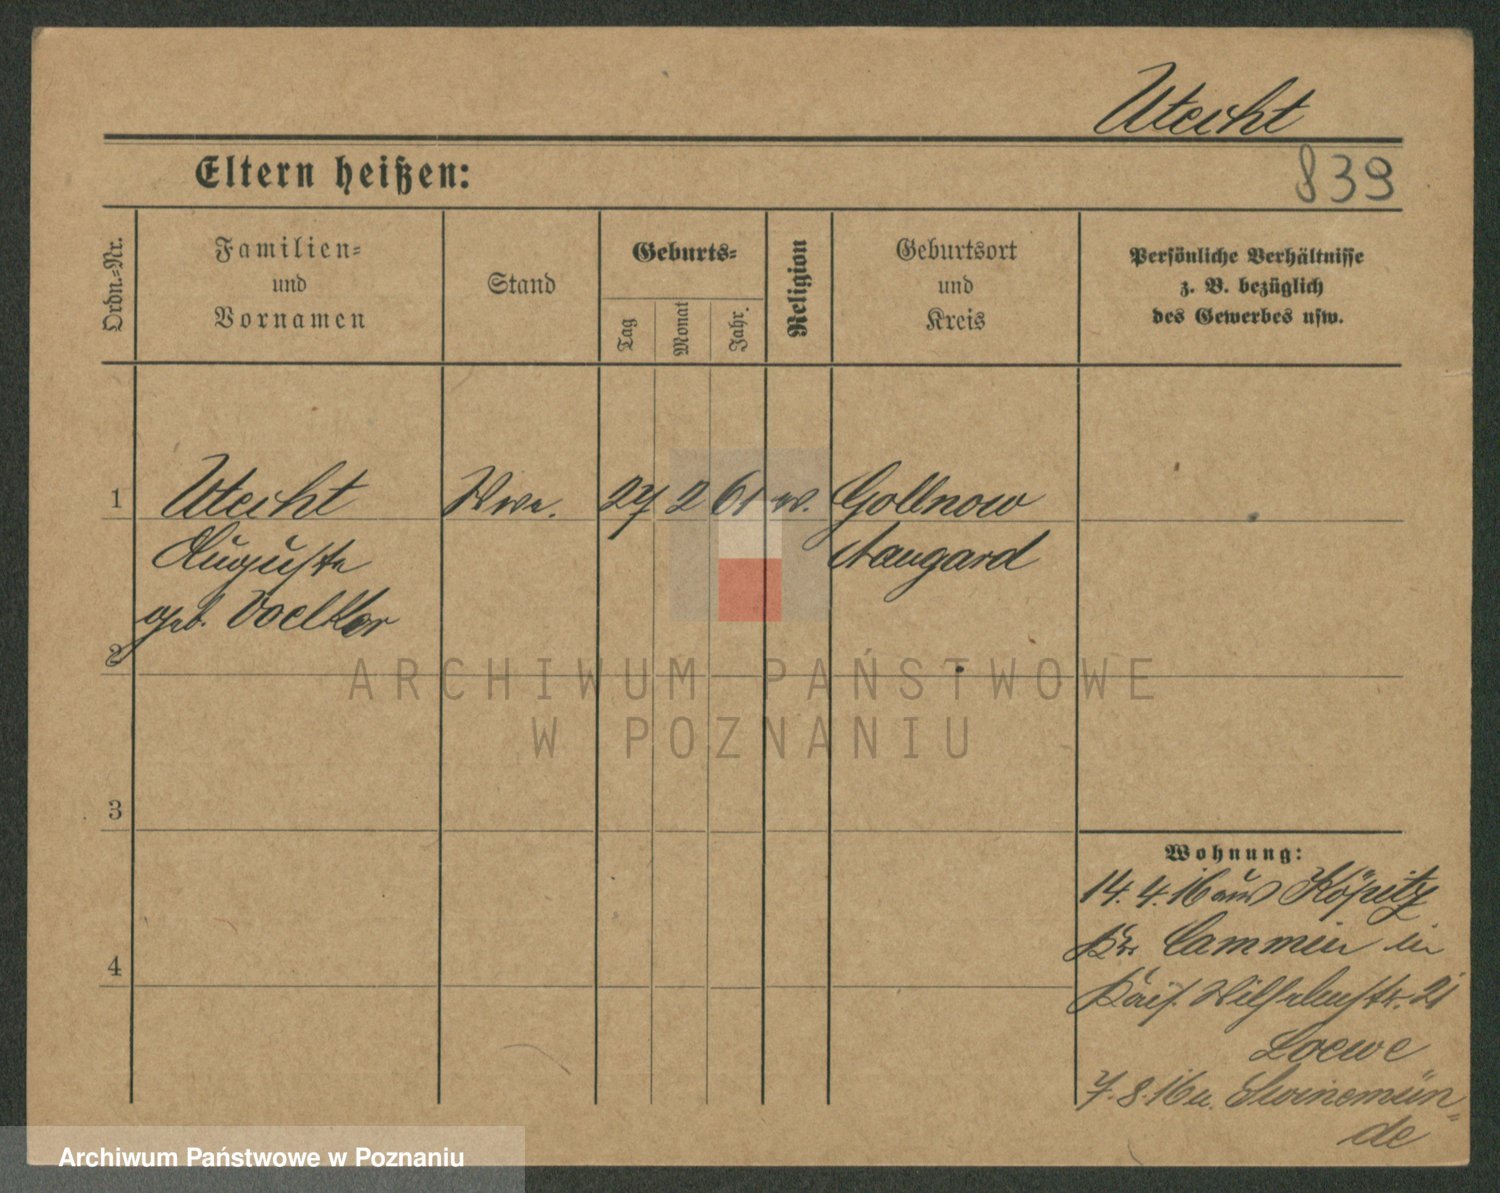 Utecht
Eltern heißen:
839
Ordn.=Nr.
Familien=
und
Vornamen
Stand
Geburts=
Tag
Monat
Jahr.
Religion
Geburtsort
und
Kreis
Persönliche Verhältnisse
z. B. bezüglich
des Gewerbes usw.
1
Utecht Wwe. 27 2 61 ev. Gollnow
Auguste Naugard
geb. Voelker
2
ARCHIWUM PAŃSTWOWE
W POZNANIU
3
Wohnung:
14. 4. 16 aus Köpitz
Kr. Cammin in
4
Kais. Wilhelmstr. 21
Loewe
7. 8. 16 n. Swinemün=
de
Archiwum Państwowe w Poznaniu